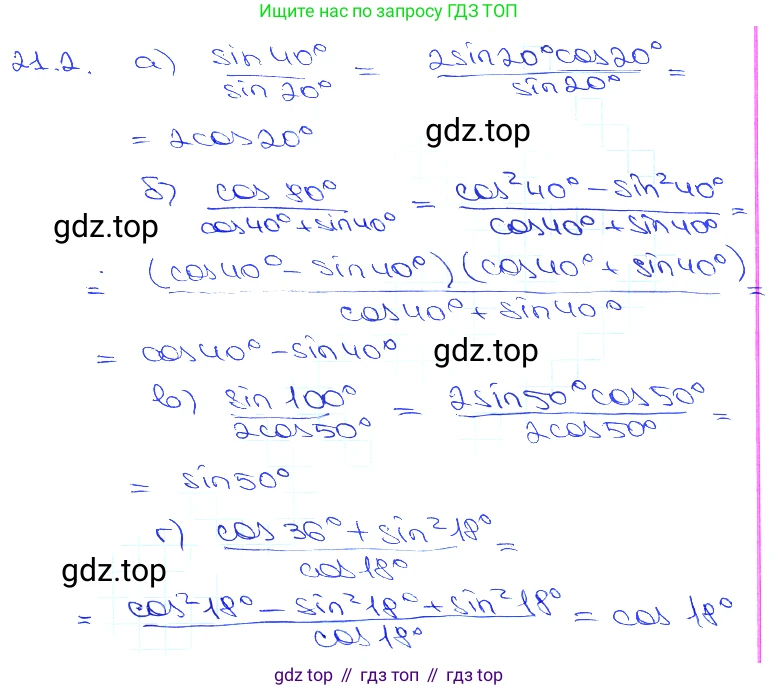 Ищите нас по запросу ГДЗ ТОП
21.2. а) sin 40° / sin 20° = 2sin20°cos20° / sin20° =
= 2cos20°
gdz.top
б) cos 80° / cos40° + sin40° = cos²40° - sin²40° / cos40° + sin40° =
gdz.top
= (cos40° - sin40°)(cos40° + sin40°) / cos40° + sin40° =
= cos40° - sin40°
gdz.top
в) sin 100° / 2cos50° = 2sin50°cos50° / 2cos50° =
= sin50°
г) cos36° + sin²18° / cos18° =
gdz.top
= cos²18° - sin²18° + sin²18° / cos18° = cos 18°
gdz top // гдз топ // gdz top